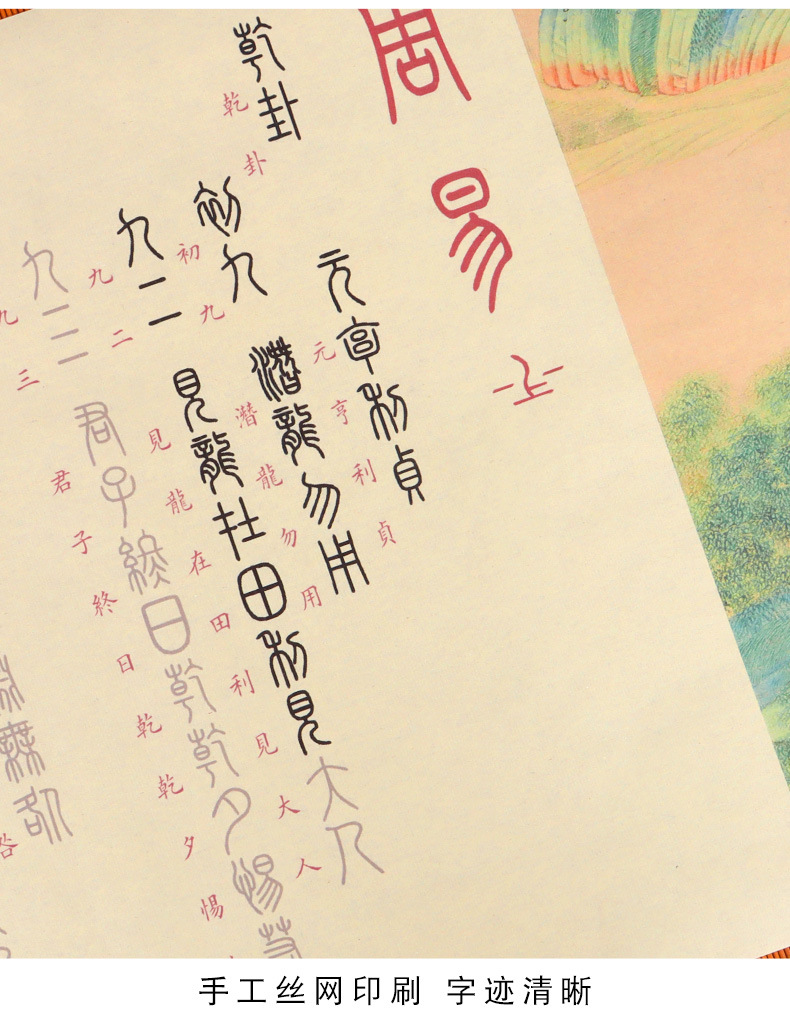 周易
乾卦
乾卦
元亨利貞
元亨利貞
初九
初九
潛龍勿用
潛龍勿用
九二
九二
見龍在田利見大人
見龍在田利見大人
九三
九三
君子終日乾乾夕惕若
君子終日乾乾夕惕
無咎
咎
手工丝网印刷 字迹清晰